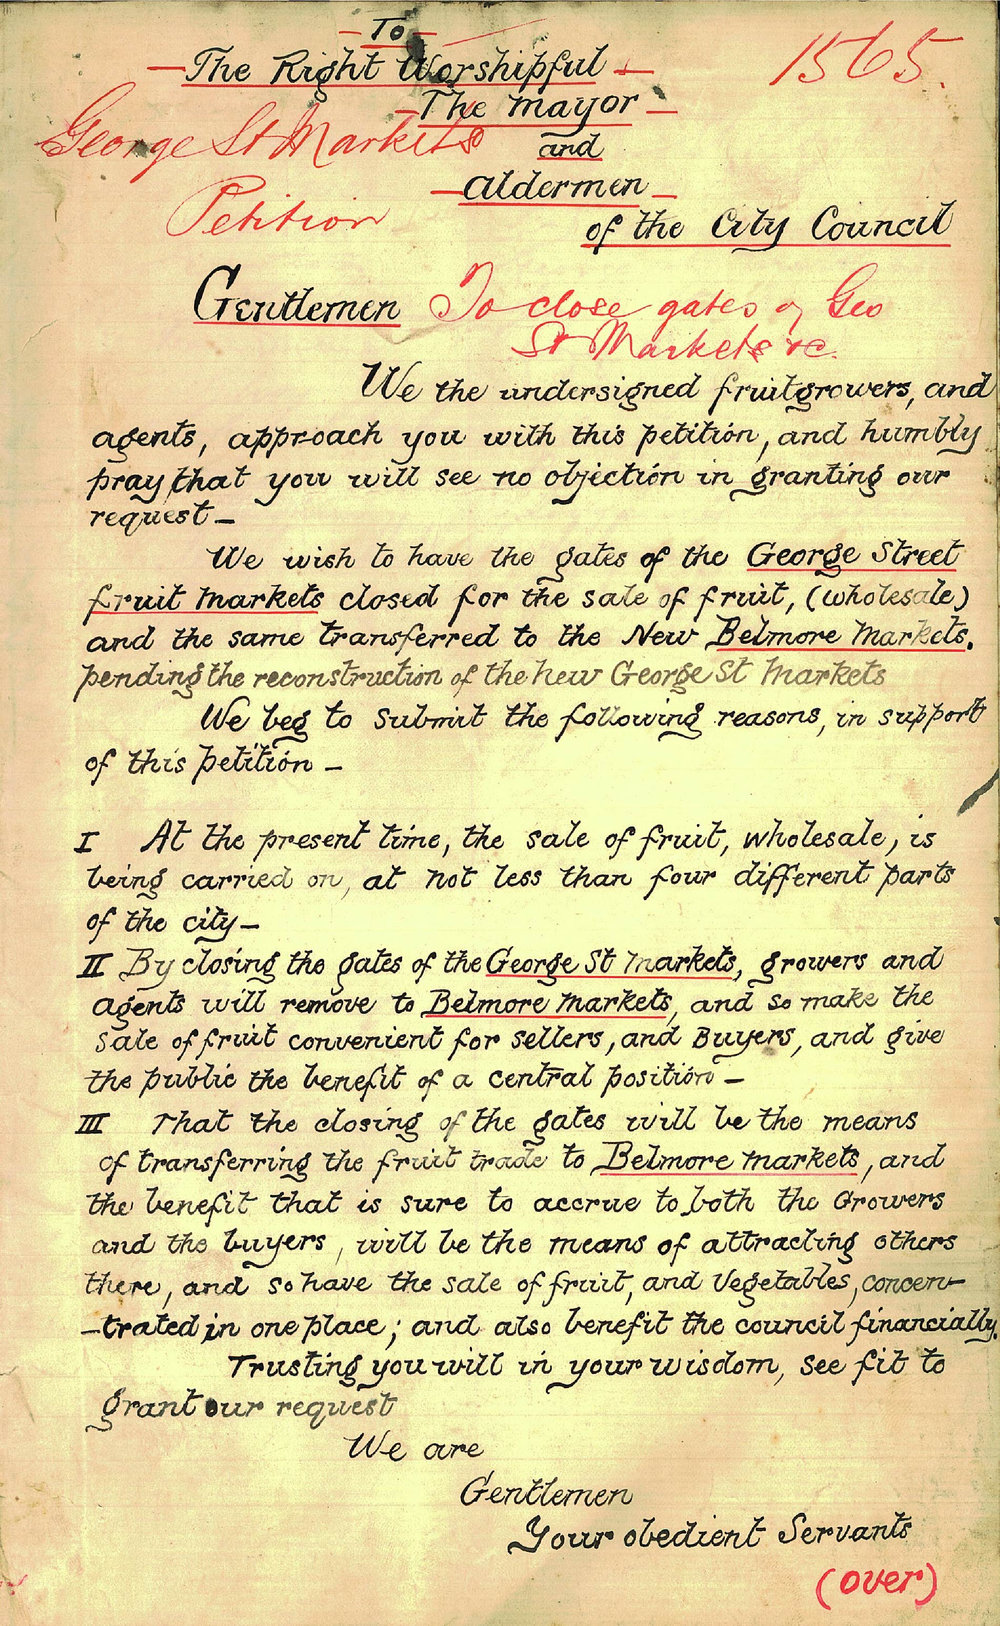 To
The Right Worshipful
1565.
The Mayor
George St Markets
and
Petition
Aldermen
of the City Council
Gentlemen
To close gates of Geo
St Markets &c.
We the undersigned fruitgrowers, and
agents, approach you with this petition, and humbly
pray that you will see no objection in granting our
request —
We wish to have the gates of the George Street
fruit Markets closed for the sale of fruit, (wholesale)
and the same transferred to the New Belmore Markets.
pending the reconstruction of the new George St Markets
We beg to submit the following reasons, in support
of this petition —
I At the present time, the sale of fruit, wholesale, is
being carried on, at not less than four different parts
of the city —
II By closing the gates of the George St Markets, growers and
agents will remove to Belmore Markets, and so make the
sale of fruit convenient for sellers, and Buyers, and give
the public the benefit of a central position —
III That the closing of the gates will be the means
of transferring the fruit trade to Belmore Markets, and
the benefit that is sure to accrue to both the Growers
and the buyers, will be the means of attracting others
there, and so have the sale of fruit, and Vegetables, concen-
-trated in one place; and also benefit the council financially.
Trusting you will in your wisdom, see fit to
grant our request
We are
Gentlemen
Your obedient Servants
(over)